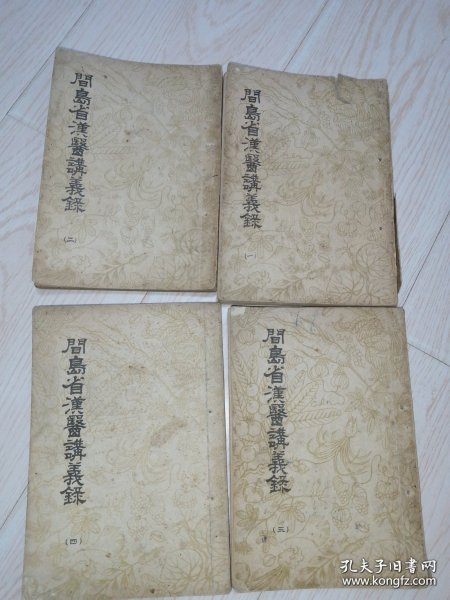 間島省漢醫講義錄
(一)
間島省漢醫講義錄
(二)
間島省漢醫講義錄
(三)
間島省漢醫講義錄
(四)
孔夫子旧书网
www.kongfz.com